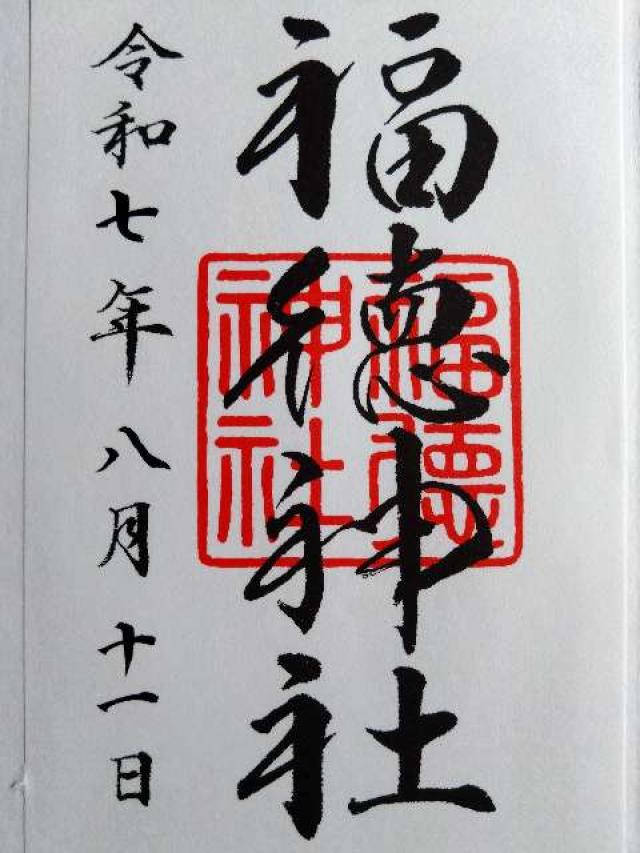 福徳神社
福徳神社
令和七年八月十一日